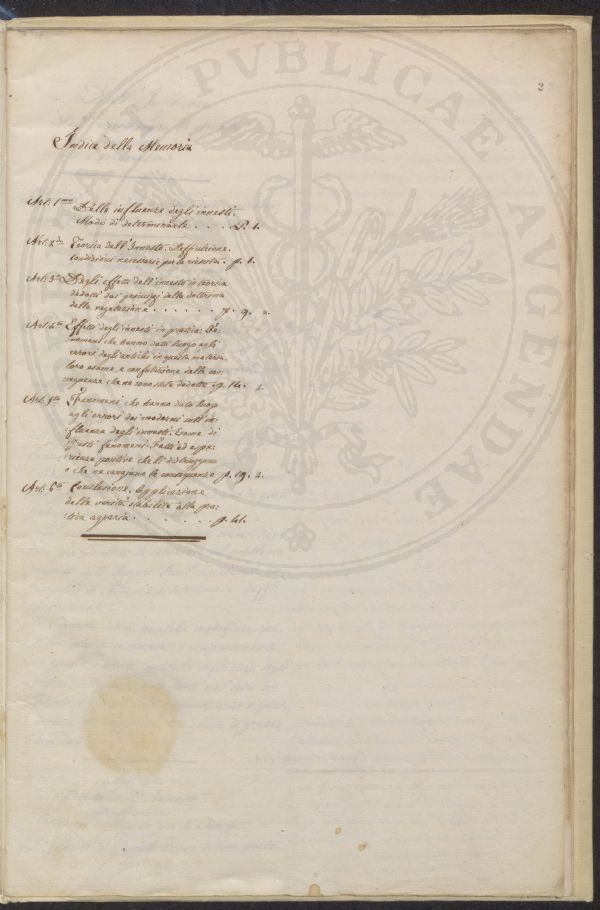 2
Indice della Memoria
Art: 1.mo Della influenza degli innesti.
Modo di determinarla . . . . P. 1.
Art: 2.do Teoria dell'Innesto. Deffinizione.
Condizioni necessarie per la riescita. p. 1.
Art: 3.o Degli effetti dell'innesto in teoria
dedotti dai principj della dottrina
della vegetazione . . . . . . p. 9. 2.
Art: 4.to Effetti degli innesti in pratica: Fe-
nomeni che hanno dato luogo agli
errori degli antichi in questa materia.
loro esame, e confutazione delle con-
seguenze che ne sono state dedotte. p. 14. 2.
Art: 5.to Fenomeni che hanno dato luogo
agli errori dei moderni sull'in-
:fluenza degli innesti. Esame di
questi fenomeni. Fatti ed espe-
:rienze positive che li distruggono
o che ne cangiano le conseguenze p. 19. 2.
Art: 6.to Conclusione. Applicazione
delle verità stabilite alla pra:
:tica agraria . . . . . . . p. 41.
PVBLICAE
AVGENDAE